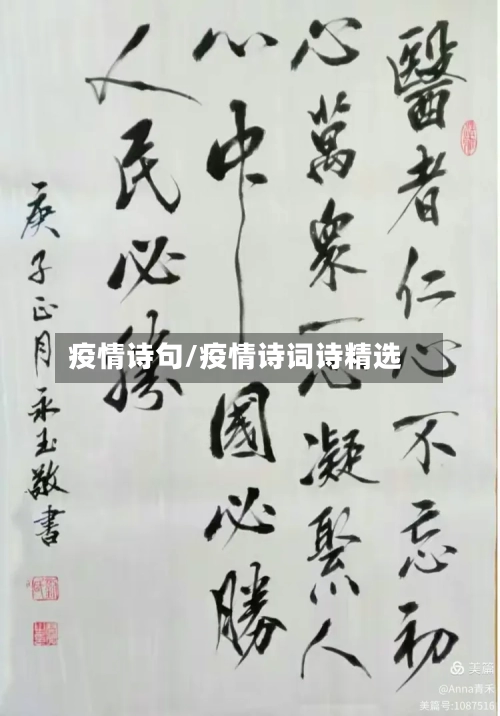 醫者仁心不忘初
心萬衆一心凝聚人
心中國必勝
人民必勝
庚子正月永玉敬書
疫情诗句/疫情诗词诗精选
美篇
@Anna青禾
美篇号:1087516